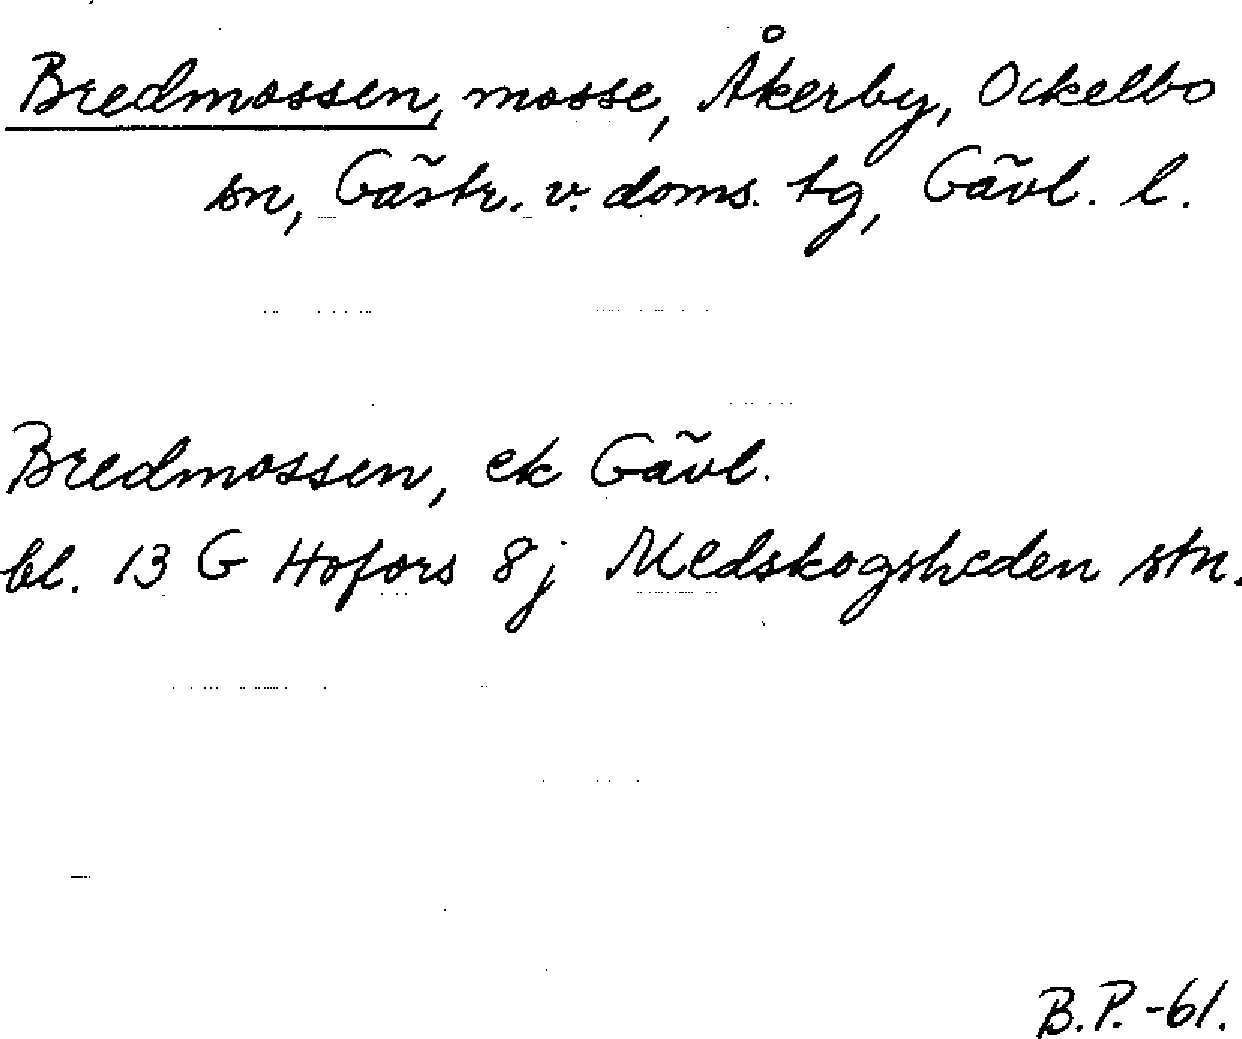 Bredmossen, mosse, Åkerby, Ockelbo
sn, Gästr. v. doms. tg, Gävl. l.
Bredmossen, ek Gävl.
bl. 13 G Hofors 8j Medskogsheden stn.
B.P.-61.